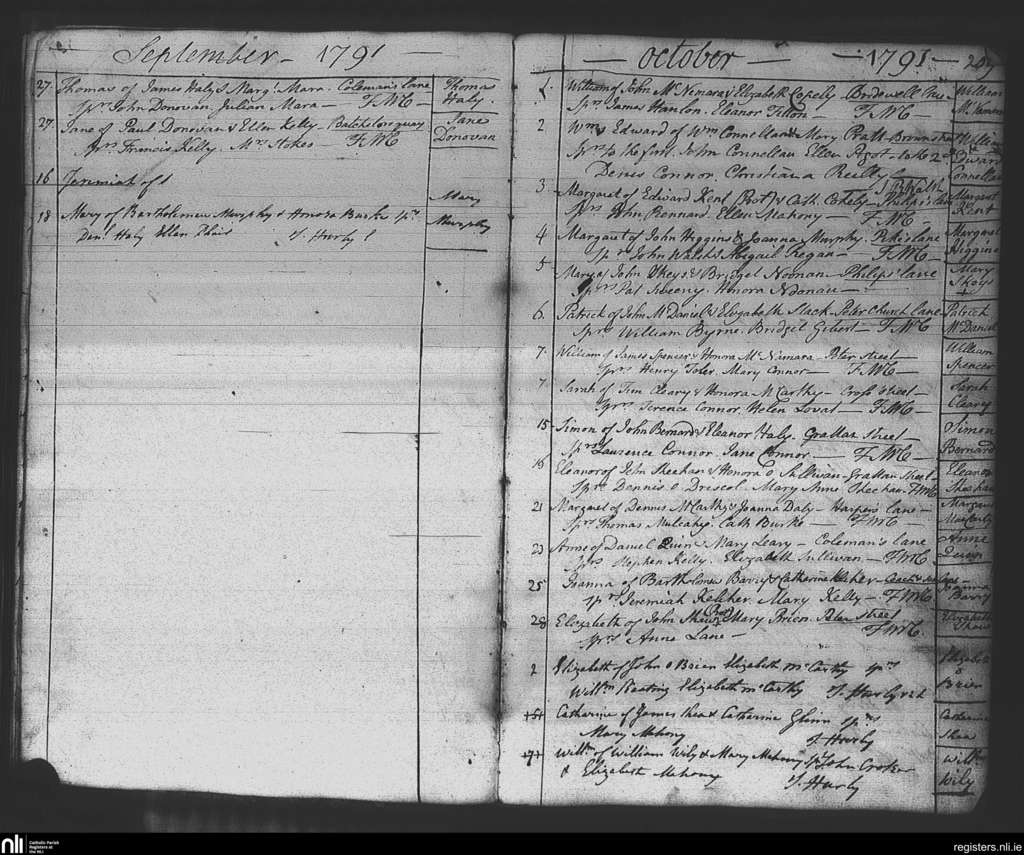 September - 1791 -
27. Thomas of James Haly & Marg: Mara. Coleman's lane
Sprs John Donovan. Julian Mara - FMC -
Thomas
Haly.
27. Jane of Paul Donovan & Ellen Kelly -
Sprs Francis Kelly. Mrs Stokes - FMC
Jane
Donovan
16 Jeremiah of
18 Mary of Bartholomew Murphy & Honora Burke Sprs
Danl Haly Ellen
T. Hurly
Mary
Murphy
- October - 1791 -
1. William of John McNemara & Elizabeth
Sprs James Hanlon. Eleanor Fitton - FMC -
William
McNemara
2 Wm & Edward of Wm Connellan & Mary Pratt
Sprs to the first. John Connellan Ellen
Denis Connor Christiana Reilly
William
&
Edward
Connellan
3. Margaret of Edward Kent & Cath.
Sprs John Ellen Mahony - FMC -
Margaret
Kent
4 Margaret of John Higgins & Joanna Murphy. lane
Sprs John Walsh & Abigail Regan - FMC -
Margaret
Higgins
5 Mary of John Skeys & Bridget Noonan - Philips' lane
Sprs Pat Sweeny. Honora
Mary
Skeys
6. Patrick of John McDaniel & Elizabeth Slack - Peter Church lane
Sprs William Byrne. Bridget Gibert - FMC
Patrick
McDaniel
7. William of James Spencer & Honora McNamara - Peter Street -
Sprs Henry Toler. Mary Connor - FMC -
William
Spencer
7 Sarah of Tim Cleary & Honora McCarthy - Cross Street -
Sprs Terence Connor. Helen Lovat - FMC -
Sarah
Cleary
15 Simon of John Bernard & Eleanor Haly. Grattan Street -
Sprs Laurence Connor. Jane Connor - FMC -
Simon
Bernard
16 Eleanor of John Sheehan & Honora O Sullivan - Grattan Street -
Sprs Dennis O Driscol. Mary Anne Sheehan - FMC
Eleanor
Sheehan
21 Margaret of Dennis McCarthy & Joanna Daly - Harpers lane -
Sprs Thomas Mulcahy. Cath Burke - FMC -
Margaret
McCarthy
23 Anne of Daniel Quin & Mary Leary - Coleman's lane
Sprs Stephen Kelly. Elizabeth Sullivan - FMC -
Anne
Quin
25 Joanna of Bartholomew Barry & Catherine Keliher -
Sprs Jeremiah Keliher. Mary Kelly - FMC -
Joanna
Barry
28 Elizabeth of John Shaw & Mary Brien. Peter Street
Sprs Anne Lane - FMC.
Elizabeth
Shaw
2 Elizabeth of John O Brien Elizabeth McCarthy sprs
Willm Keating Elizabeth McCarthy T. Hurly
Elizabeth
O
Brien
Catharine of James Shea & Catharine Glinn Sprs
Mary Mahony T Hurly
Catharine
Shea
Willm of William Wily & Mary Mahony Sprs John Croker
& Elizabeth Mahony
T. Hurly
Willm
Wily
nli
Catholic Parish
Registers at
the NLI
registers.nli.ie